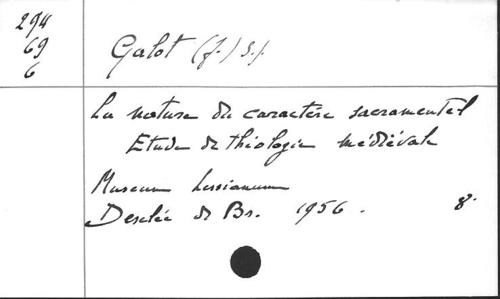 294
69
6
Galot (J.) S.J.
La nature du caractère sacramentel
Etude de théologie médiévale
Museum Lessianum
Desclée de Br. 1956. 8°